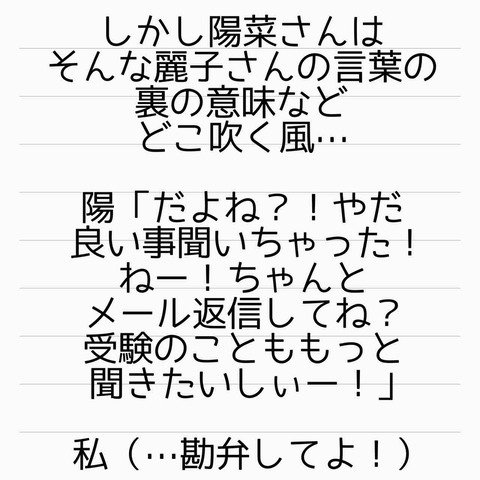 しかし陽菜さんは
そんな麗子さんの言葉の
裏の意味など
どこ吹く風…
陽「だよね？！やだ
良い事聞いちゃった！
ねー！ちゃんと
メール返信してね？
受験のことももっと
聞きたいしぃー！」
私（…勘弁してよ！）